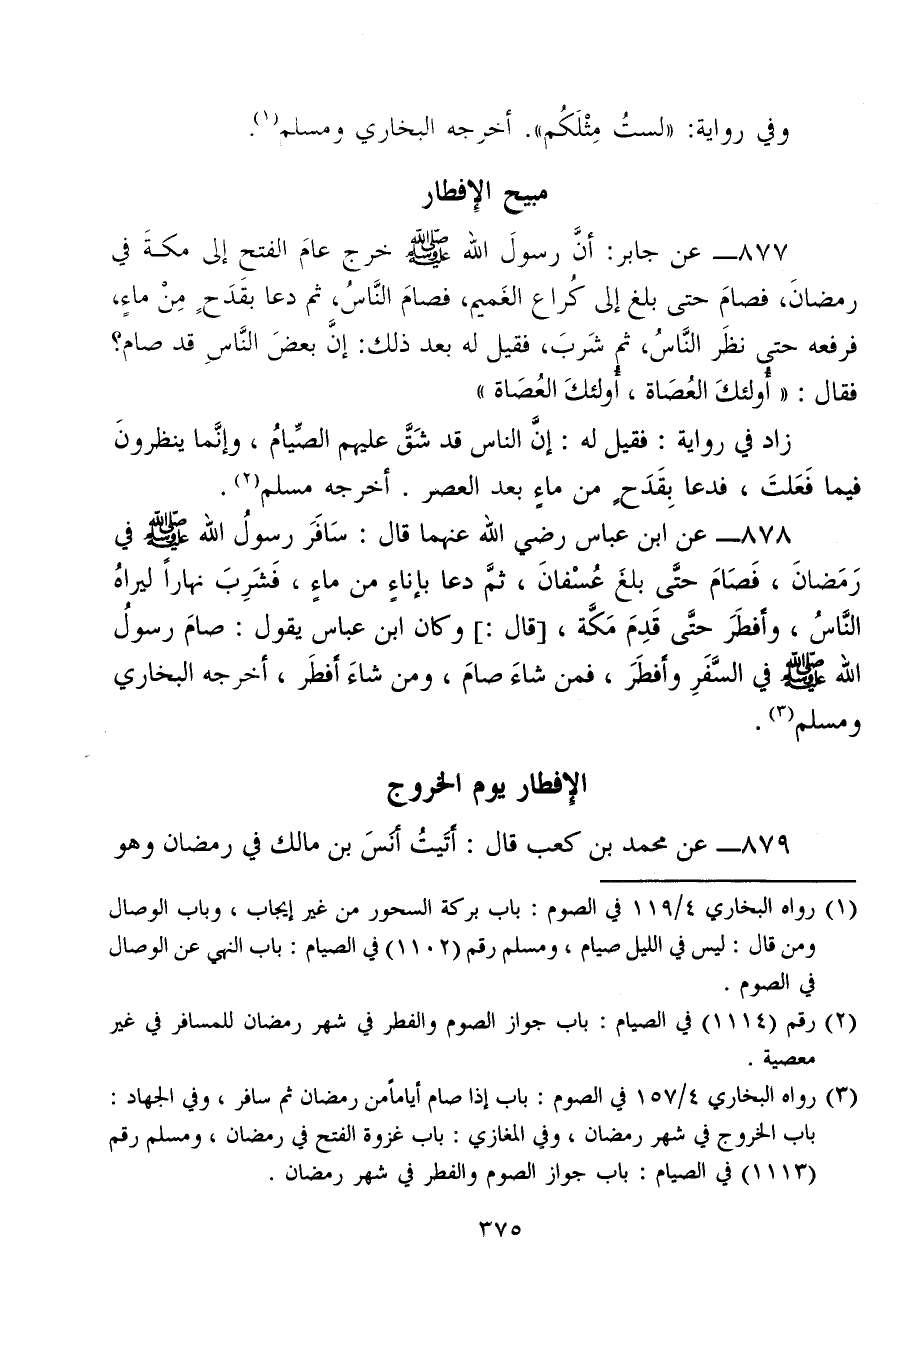 وفي رواية: «لستُ مِثْلَكُم». أخرجه البخاري ومسلم(١).
مبيح الإفطار
٨٧٧ــ عن جابر: أنَّ رسولَ الله ﷺ خرج عامَ الفتح إلى مكـةَ في
رمضانَ، فصامَ حتى بلغ إلى كُراع الغَميم، فصامَ النَّاسُ، ثم دعا بقَدَحٍ مِنْ ماءٍ،
فرفعه حتى نظَر النَّاسُ، ثم شَربَ، فقيل له بعد ذلك: إنَّ بعضَ النَّاسِ قد صام؟
فقال : « أُولئكَ العُصَاة ، أُولئكَ العُصَاة »
زاد في رواية : فقيل له : إنَّ الناس قد شَقَّ عليهم الصِّيامُ ، وإنَّما ينظرونَ
فيما فَعَلتَ ، فدعا بِقَدَحٍ من ماءٍ بعد العصر . أخرجه مسلم(٢) .
٨٧٨ــ عن ابن عباس رضي الله عنهما قال : سَافَرَ رسولُ الله ﷺ في
رَمَضانَ ، فَصَامَ حتَّى بلغَ عُسْفانَ ، ثمَّ دعا بإناءٍ من ماءٍ ، فَشَرِبَ نهاراً ليراهُ
النَّاسُ ، وأفطَرَ حتَّى قَدِمَ مَكَّة ، [قال :] وكان ابن عباس يقول : صامَ رسولُ
الله ﷺ في السَّفَرِ وأفطَرَ ، فمن شاءَ صامَ ، ومن شاءَ أفطَر ، أخرجه البخاري
ومسلم(٣) .
الإفطار يوم الخروج
٨٧٩ــ عن محمد بن كعب قال : أَتَيتُ أنَسَ بن مالك في رمضان وهو
(١) رواه البخاري ١١٩/٤ في الصوم : باب بركة السحور من غير إيجاب ، وباب الوصال
ومن قال : ليس في الليل صيام ، ومسلم رقم (١١٠٢) في الصيام : باب النهي عن الوصال
في الصوم .
(٢) رقم (١١١٤) في الصيام : باب جواز الصوم والفطر في شهر رمضان للمسافر في غير
معصية .
(٣) رواه البخاري ١٥٧/٤ في الصوم : باب إذا صام أياماًمن رمضان ثم سافر ، وفي الجهاد :
باب الخروج في شهر رمضان ، وفي المغازي : باب غزوة الفتح في رمضان ، ومسلم رقم
(١١١٣) في الصيام : باب جواز الصوم والفطر في شهر رمضان .
٣٧٥